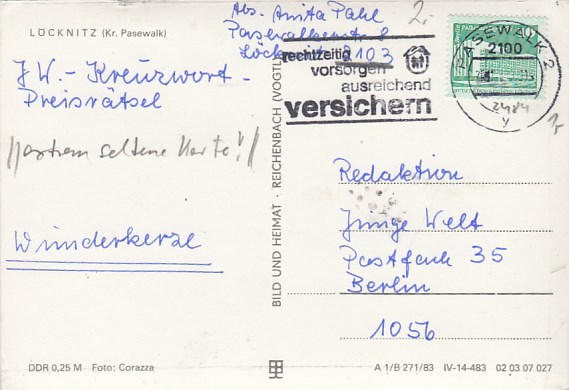 LÖCKNITZ (Kr. Pasewalk)
Abs. Anita Pahl
Pasewalkerstr 8
Löcknitz 2103
2,-
JW.- Kreuzwort-
Preisrätsel
rechtzeitig
vorsorgen
ausreichend
versichern
PASEWALK 2
2100
y
Wunderkerze
BILD UND HEIMAT · REICHENBACH (VOGTL
Redaktion
Junge Welt
Postfach 35
Berlin
1056
DDR 0,25 M Foto: Corazza
A 1/B 271/83 IV-14-483 02 03 07 027